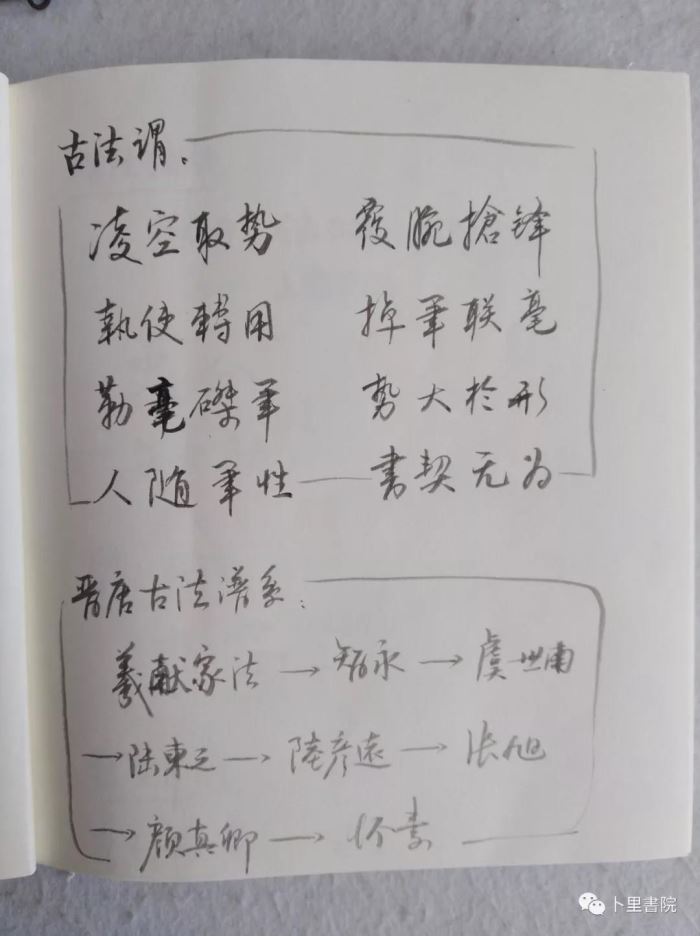 古法谓：
凌空取势 覆腕搶锋
執使轉用 掉笔联毫
勒毫磔笔 势大於形
人随笔性 书契无为
晋唐古法谱系：
羲献家法→智永→虞世南
→陆柬之→陸彦遠→张旭
→颜真卿→怀素
卜里書院